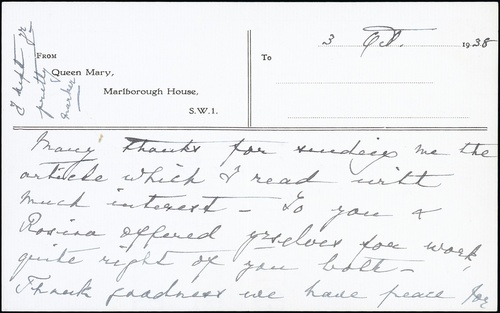 I kept yr
pretty
marker
From
Queen Mary,
Marlborough House,
S.W.1.
To
3 Oct. 1938
Many thanks for sending me the
article which I read with
much interest – So you &
Rosina offered yrselves for work,
quite right of you both –
Thank goodness we have peace for